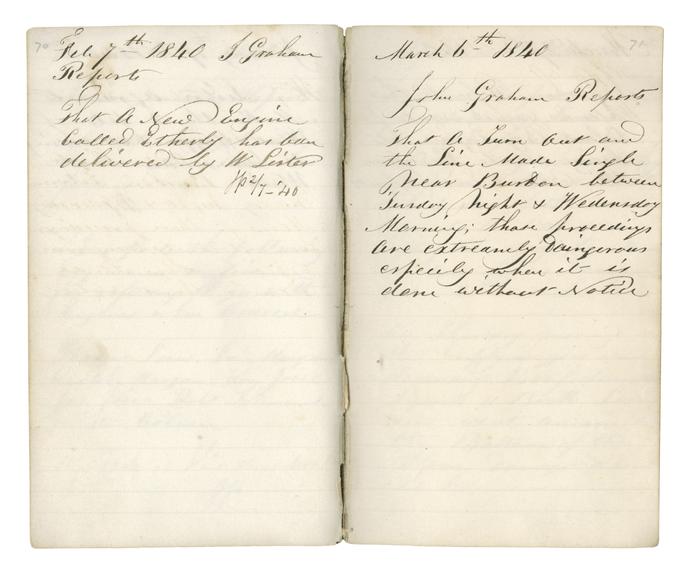 70
Feb 7th 1840 J Graham
Reports
That A New Engine
Called Etherly has been
delivered by W Lister
2/7-'40
71
March 6th 1840
John Graham Reports
That A Turn Out and
the Line Made Single
Near Burdon between
Tuesday Night & Wedensday
Morning; those proceedings
are extreamly Daingerous
espicily when it is
done without Notice